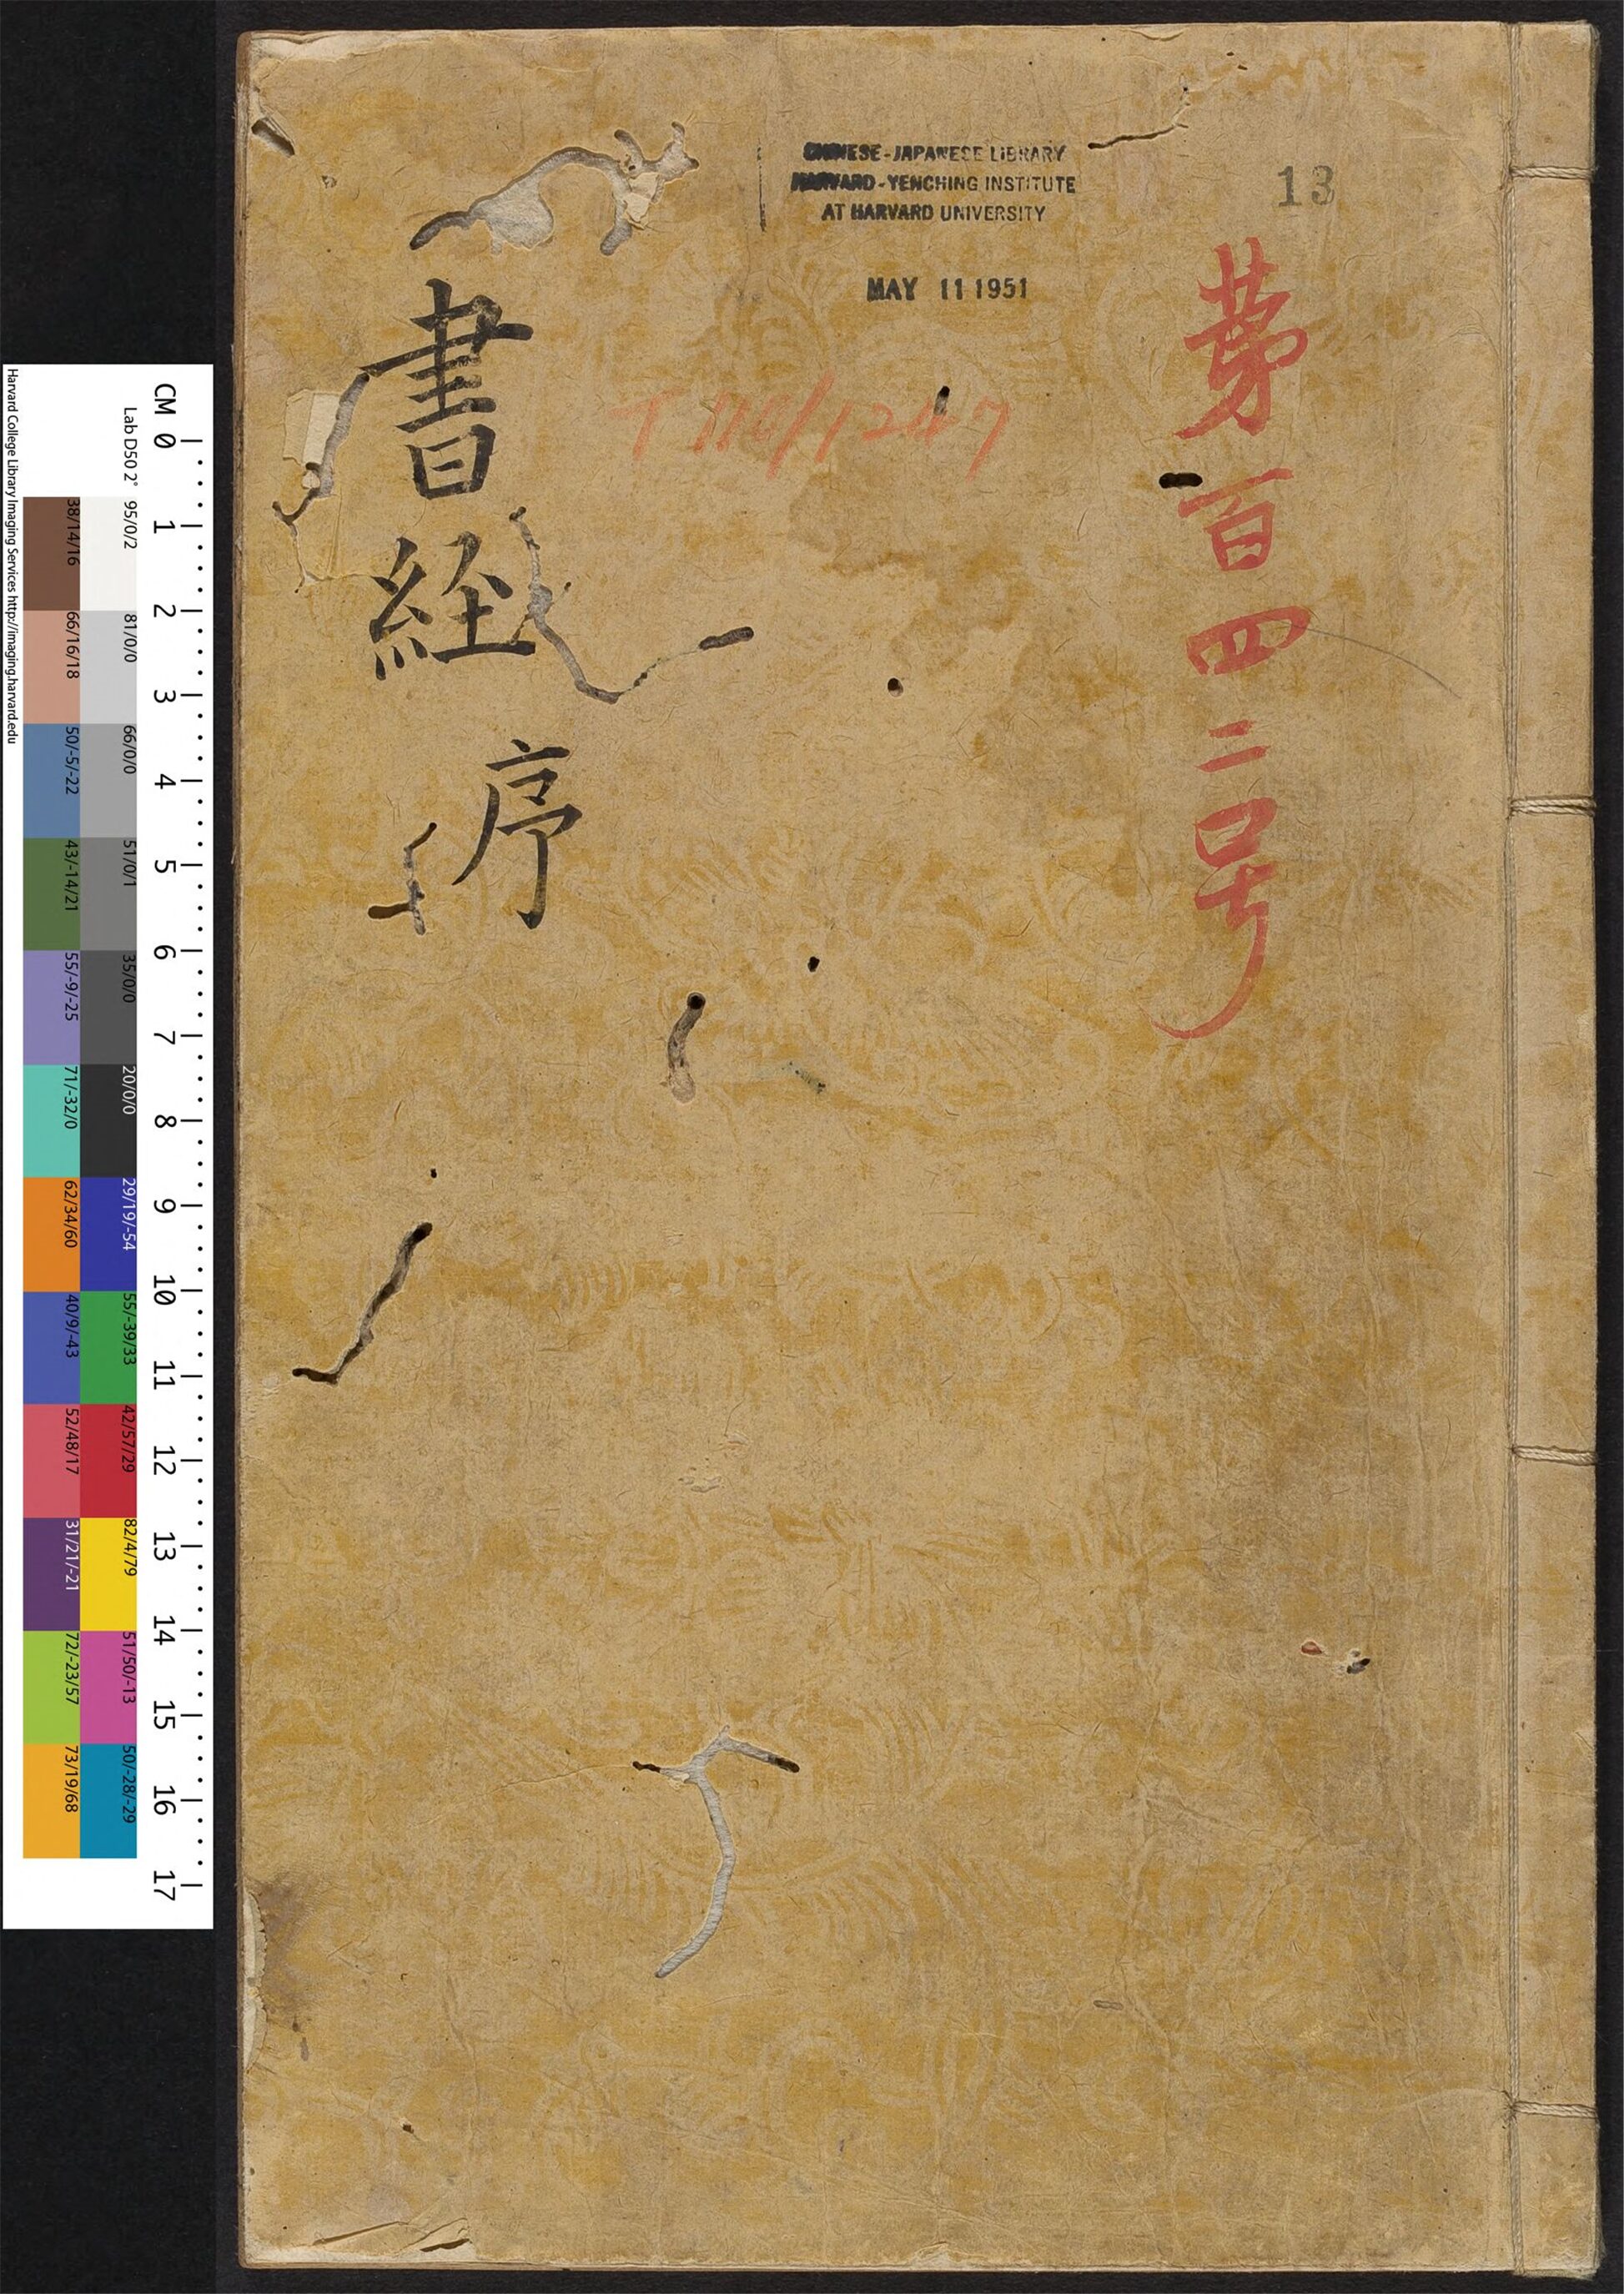 CHINESE-JAPANESE LIBRARY
HARVARD-YENCHING INSTITUTE
AT HARVARD UNIVERSITY
MAY 11 1951
13
第百四二号
T 116/1247
書經 序
CM 0 1 2 3 4 5 6 7 8 9 10 11 12 13 14 15 16 17
Lab D50 2° 95/0/2 81/0/0 66/0/0 51/0/1 35/0/0 20/0/0 29/19/-54 55/-39/33 42/57/29 82/4/79 51/50/-13 50/-28/-29
38/14/16 66/16/18 50/-5/-22 43/-14/21 55/-9/-25 71/-32/0 62/34/60 40/9/-43 52/48/17 31/21/-21 72/-23/57 73/19/68
Harvard College Library Imaging Services http://imaging.harvard.edu